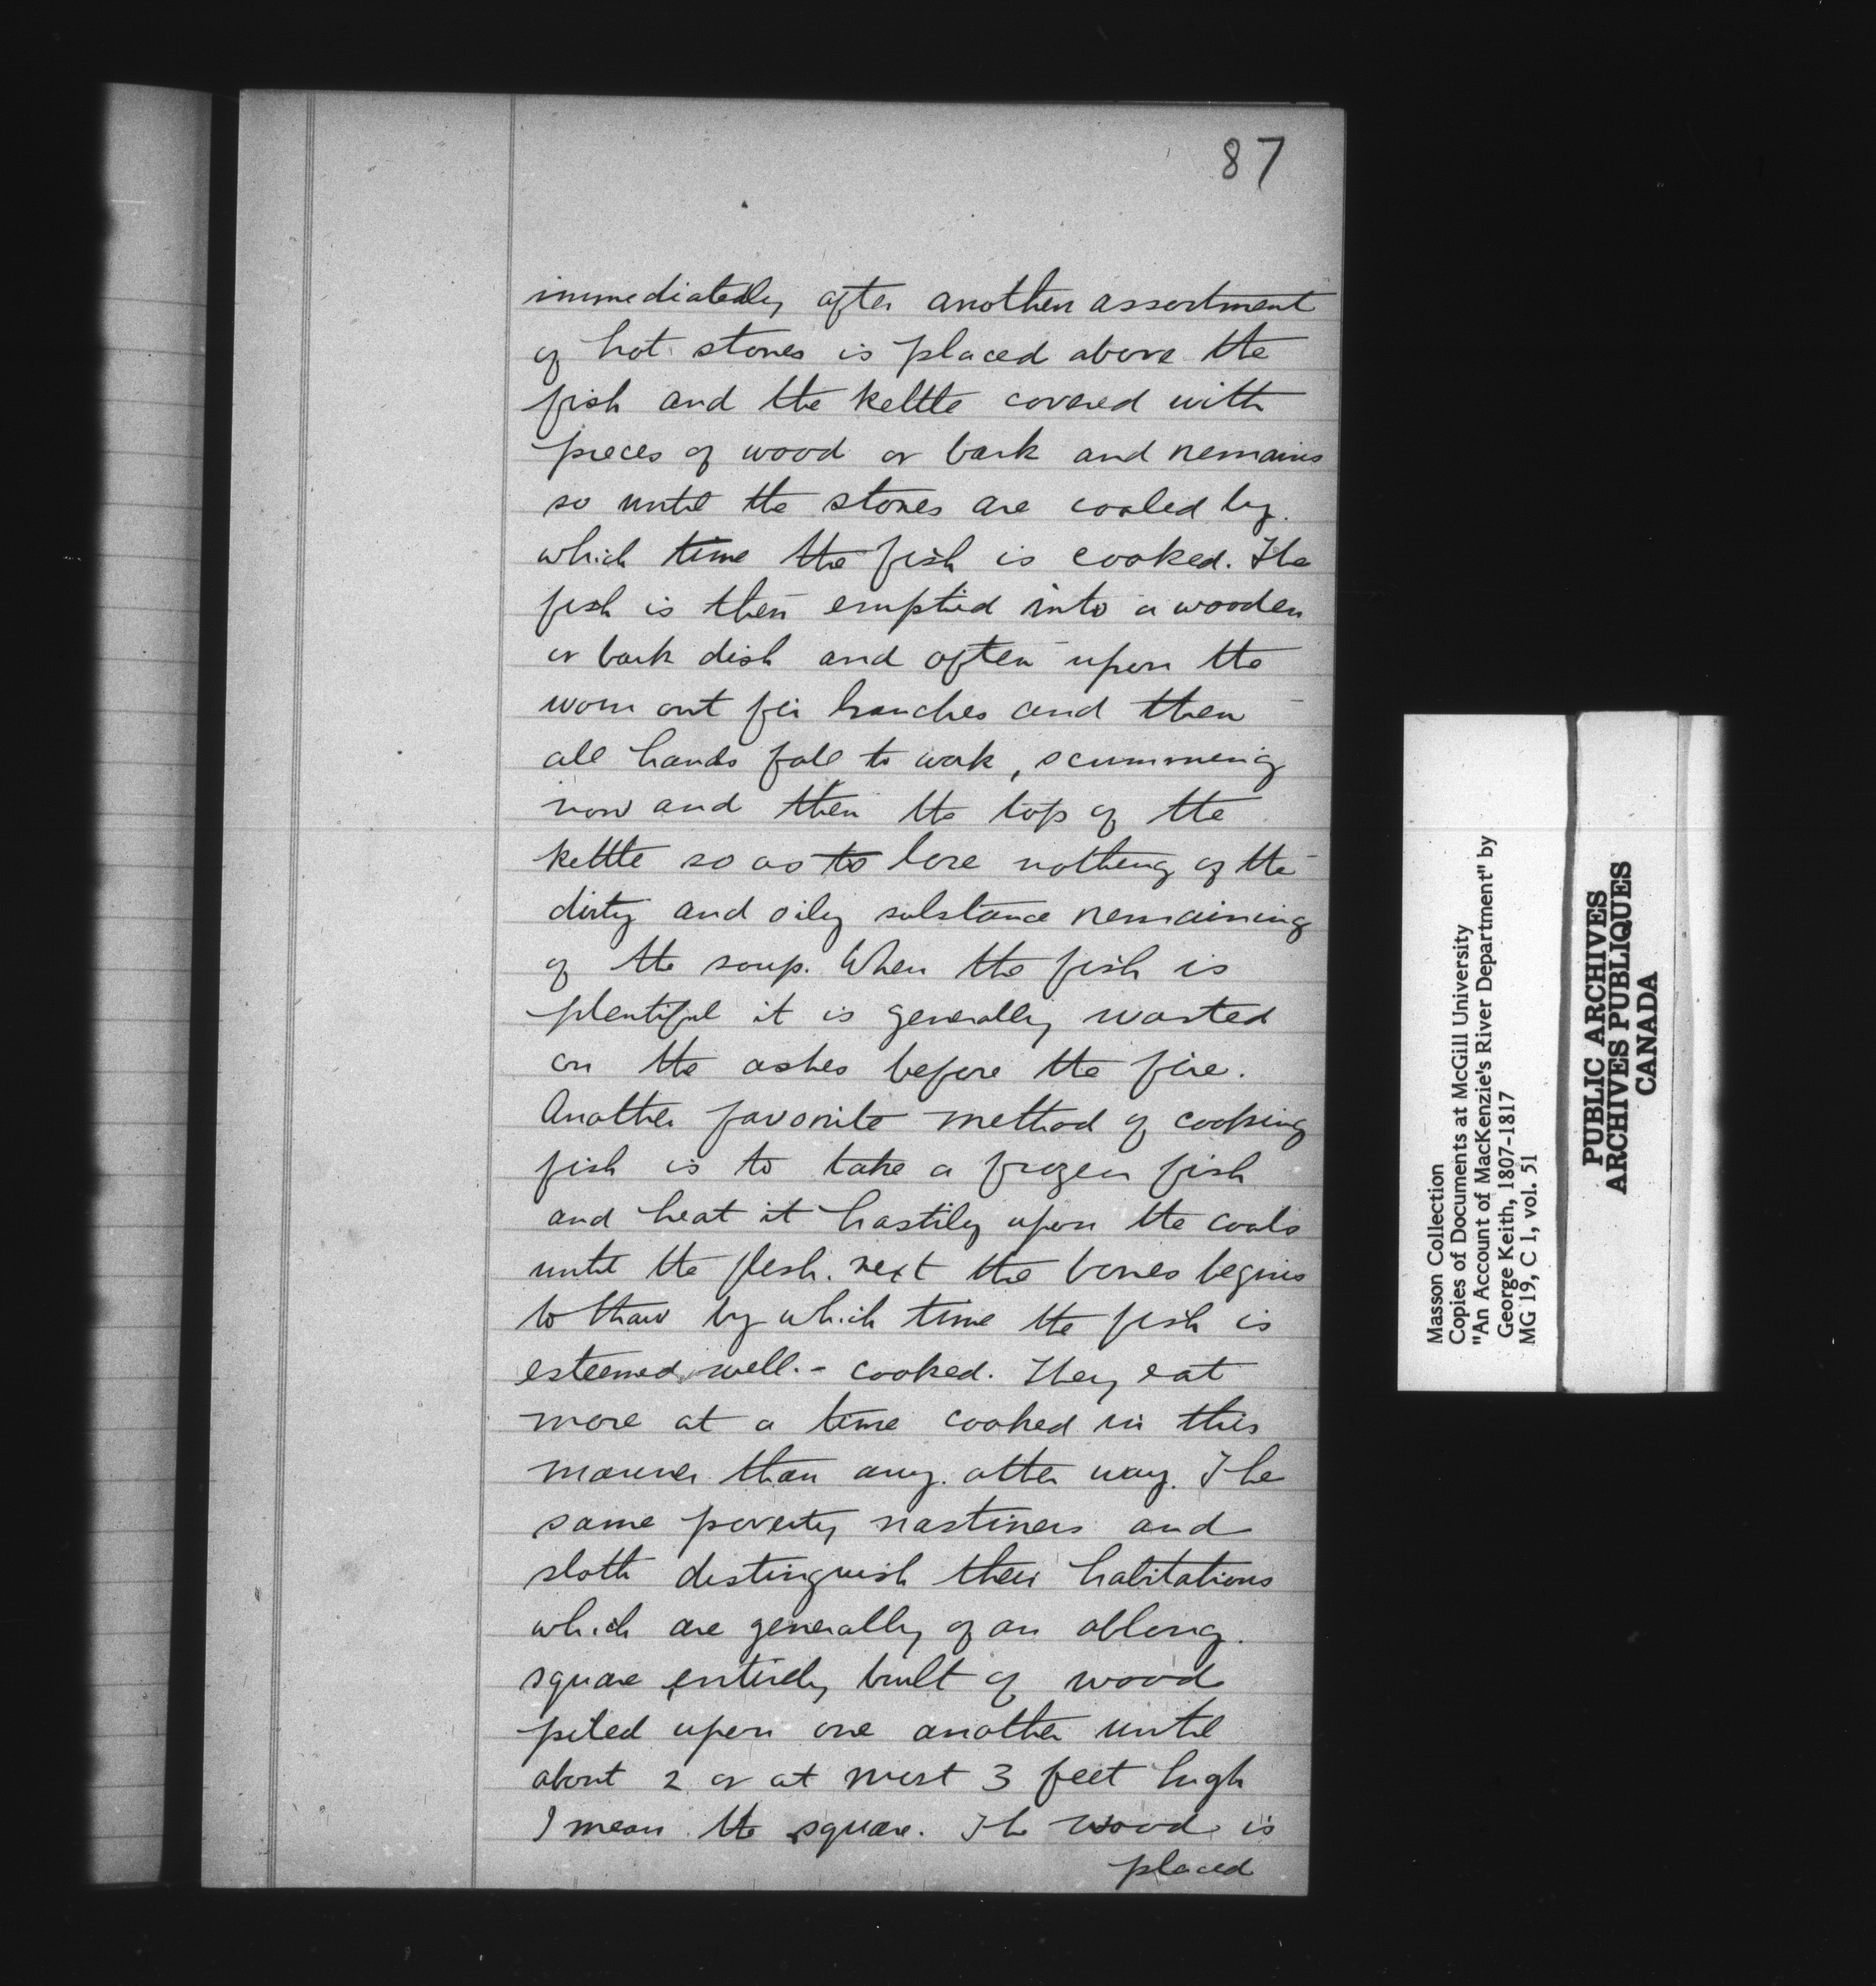 87
immediately after another assortment
of hot stones is placed above the
fish and the kettle covered with
pieces of wood or bark and remains
so until the stones are cooled by
which time the fish is cooked. The
fish is then emptied into a wooden
or bark dish and often upon the
worn out fir branches and then
all hands fall to work, scumming
now and then the top of the
kettle so as to lose nothing of the
dirty and oily substance remaining
of the soup. When the fish is
plentiful it is generally wasted
on the ashes before the fire.
Another favorite method of cooking
fish is to take a frozen fish
and heat it hastily upon the coals
until the flesh next the bones begins
to thaw by which time the fish is
esteemed well-cooked. They eat
more at a time cooked in this
manner than any other way. The
same poverty nastiness and
sloth distinguish their habitations
which are generally of an oblong
square entirely built of wood
piled upon one another until
about 2 or at most 3 feet high
I mean the square. The wood is
placed
Masson Collection
Copies of Documents at McGill University
"An Account of MacKenzie's River Department" by
George Keith, 1807-1817
MG 19, C 1, vol. 51
PUBLIC ARCHIVES
ARCHIVES PUBLIQUES
CANADA